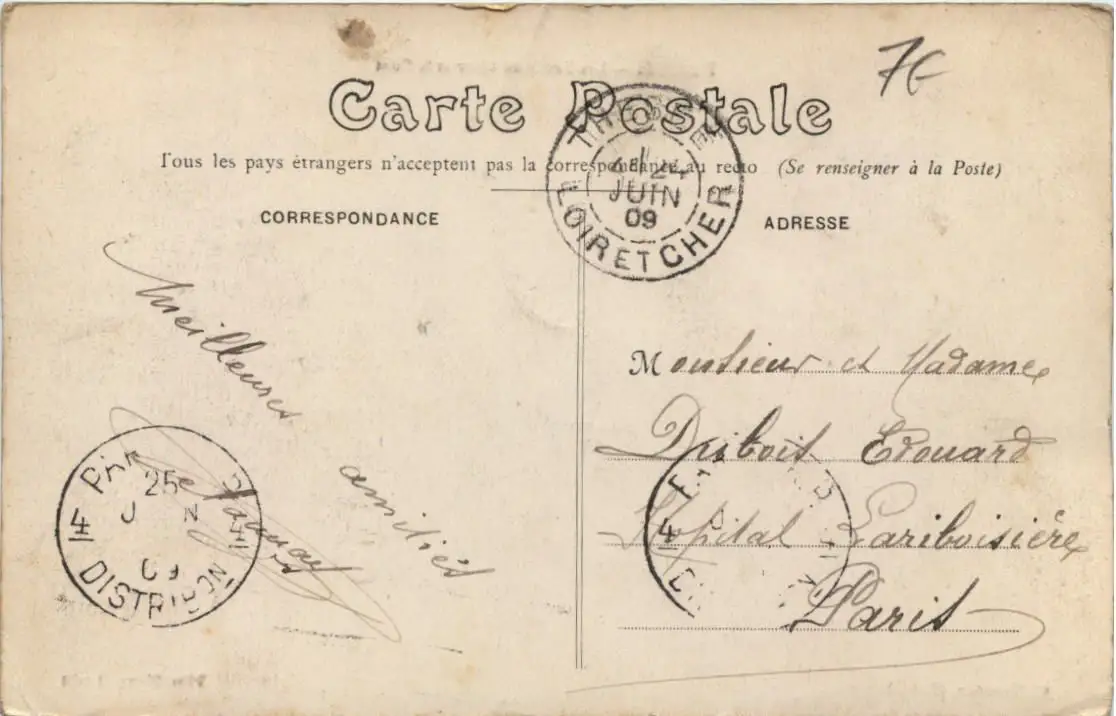 7€
Carte Postale
Tous les pays étrangers n'acceptent pas la correspondance au recto (Se renseigner à la Poste)
LOIR ET CHER
24
JUIN
09
CORRESPONDANCE
ADRESSE
Meilleures
amitiés
Monsieur et Madame
Dubois Edouard
Hôpital Lariboisière
Paris
PARIS
25
09
4
DISTRIBON
4